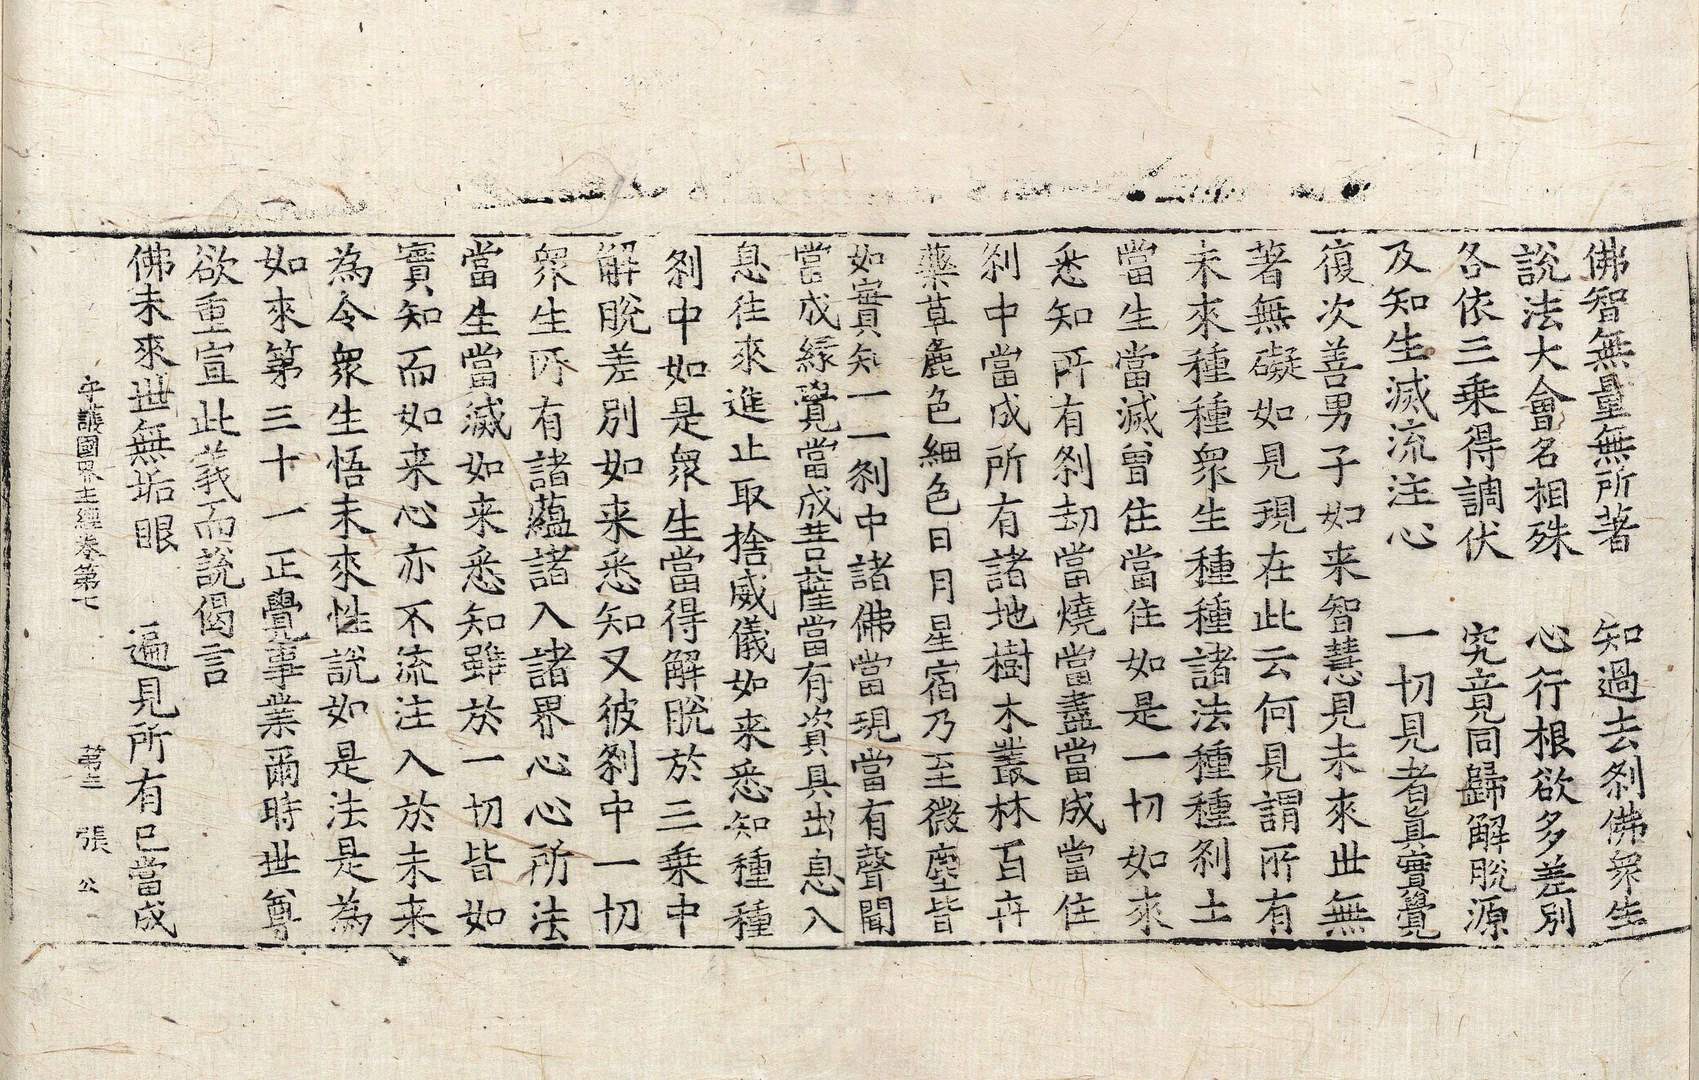 佛智無量無所著　知過去剎佛衆生
說法大會名相殊　心行根欲多差別
各依三乗得調伏　究竟同歸解脫源
及知生滅流注心　一切見者眞實覺
復次善男子如来智慧見未來世無
著無礙如見現在此云何見謂所有
未來種種衆生種種諸法種種剎土
當生當滅曽住當住如是一切如來
悉知所有剎劫當燒當盡當成當住
剎中當成所有諸地樹木叢林百卉
藥草麁色細色日月星宿乃至微塵皆
如實知一一剎中諸佛當現當有聲聞
當成緣覺當成菩薩當有資具出息入
息往來進止取捨威儀如来悉知種種
剎中如是衆生當得解脫於三乗中
解脫差別如来悉知又彼剎中一切
衆生所有諸蘊諸入諸界心心所法
當生當滅如来悉知雖於一切皆如
實知而如来心亦不流注入於未来
為令衆生悟未來性說如是法是為
如來第三十一正覺事業爾時世尊
欲重宣此義而說偈言
佛未來世無垢眼　遍見所有已當成
守護國界主經卷第七　第三　張　公